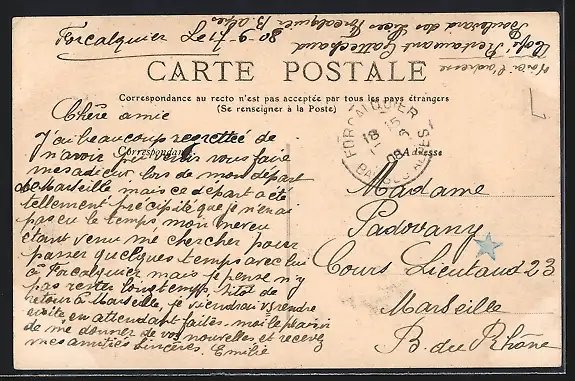 Forcalquier Le 17-9-08
Café Restaurant Gallechaud
Boulevard des Lices Forcalquier B. alpes
CARTE POSTALE
Correspondance au recto n'est pas acceptée par tous les pays étrangers
(Se renseigner à la Poste)
Correspondance
Adresse
FORCALQUIER
BASSES-ALPES
Chère amie
J'ai beaucoup regrettée de
n'avoir pu venir vous faire
mes adieux, lors de mon départ
de Marseille mais ce départ a été
tellement précipité que je n'en ai
pas eu le temps, mon neveu
étant venu me chercher pour
passer quelques temps avec lui
à Forcalquier mais je pense n'y
pas rester longtemps. Sitot de
retour à Marseille, je viendrai vs rendre
visite, en attendant faites-moi le plaisir
de me donner de vos nouvelles et recevez
mes amitiés sincères. Emilie
Madame
Padovany
Cours Lieutaud 23
Marseille
B. du Rhône